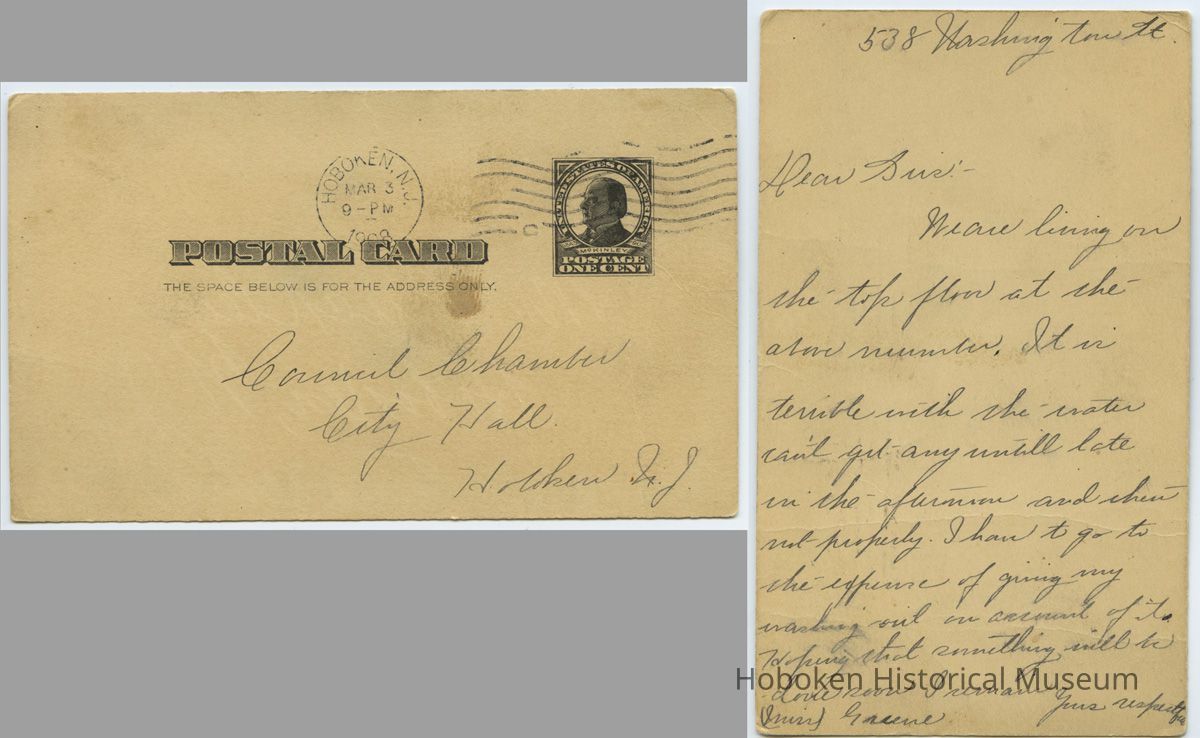 HOBOKEN, N.J.
MAR 3
9-PM
1908
UNITED STATES OF AMERICA
McKINLEY
POSTAGE
ONE CENT
POSTAL CARD
THE SPACE BELOW IS FOR THE ADDRESS ONLY.
Council Chamber
City Hall
Hoboken N.J.
538 Washington St.
Dear Sirs:-
We are living on
the top floor at the
above number. It is
terrible with the water
can't get any untill late
in the afternoon and then
not properly. I have to go to
the expense of giving my
washing out on account of it.
Hoping that something will be
done soon I remain
Yours respectfu
(Mrs) Greene
Hoboken Historical Museum